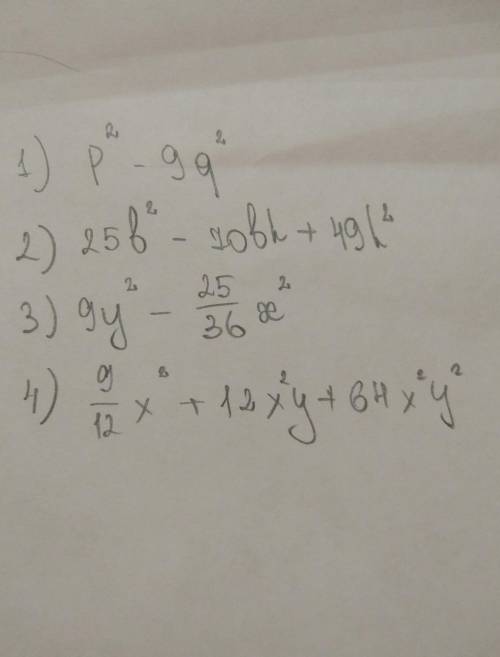 1) p² - 9q²
2) 25b² - 70bh + 49h²
3) 9y² - 25/36 æ²
4) 9/12 x² + 12x²y + 64x²y²